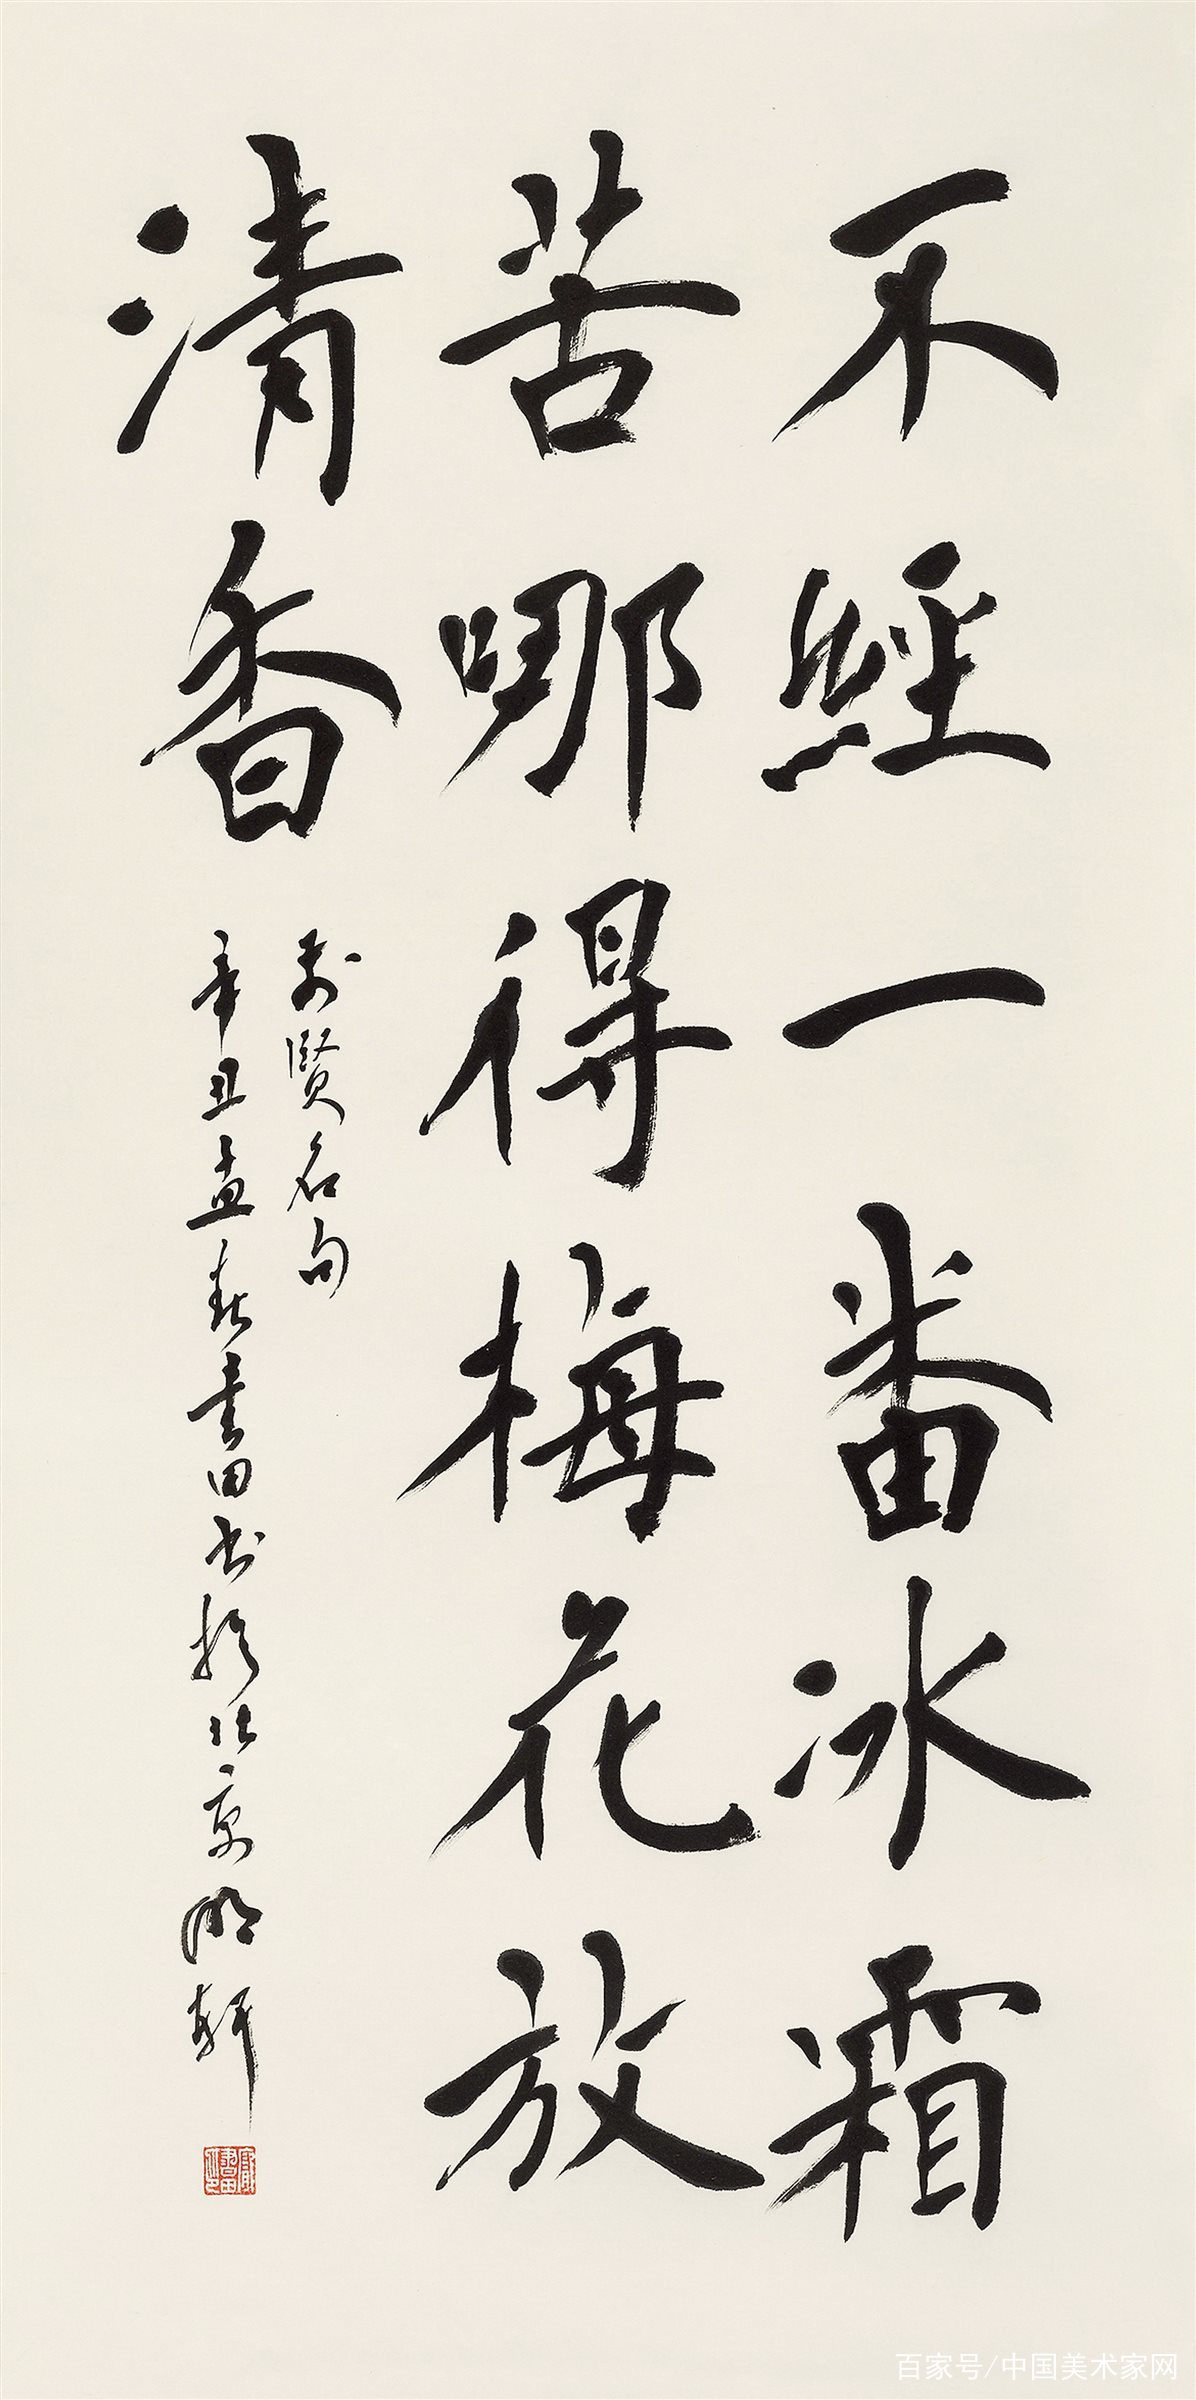 不經一番冰霜
苦哪得梅花放
清香
前賢名句
辛丑孟春書田书於北京明轩
百家号/中国美术家网